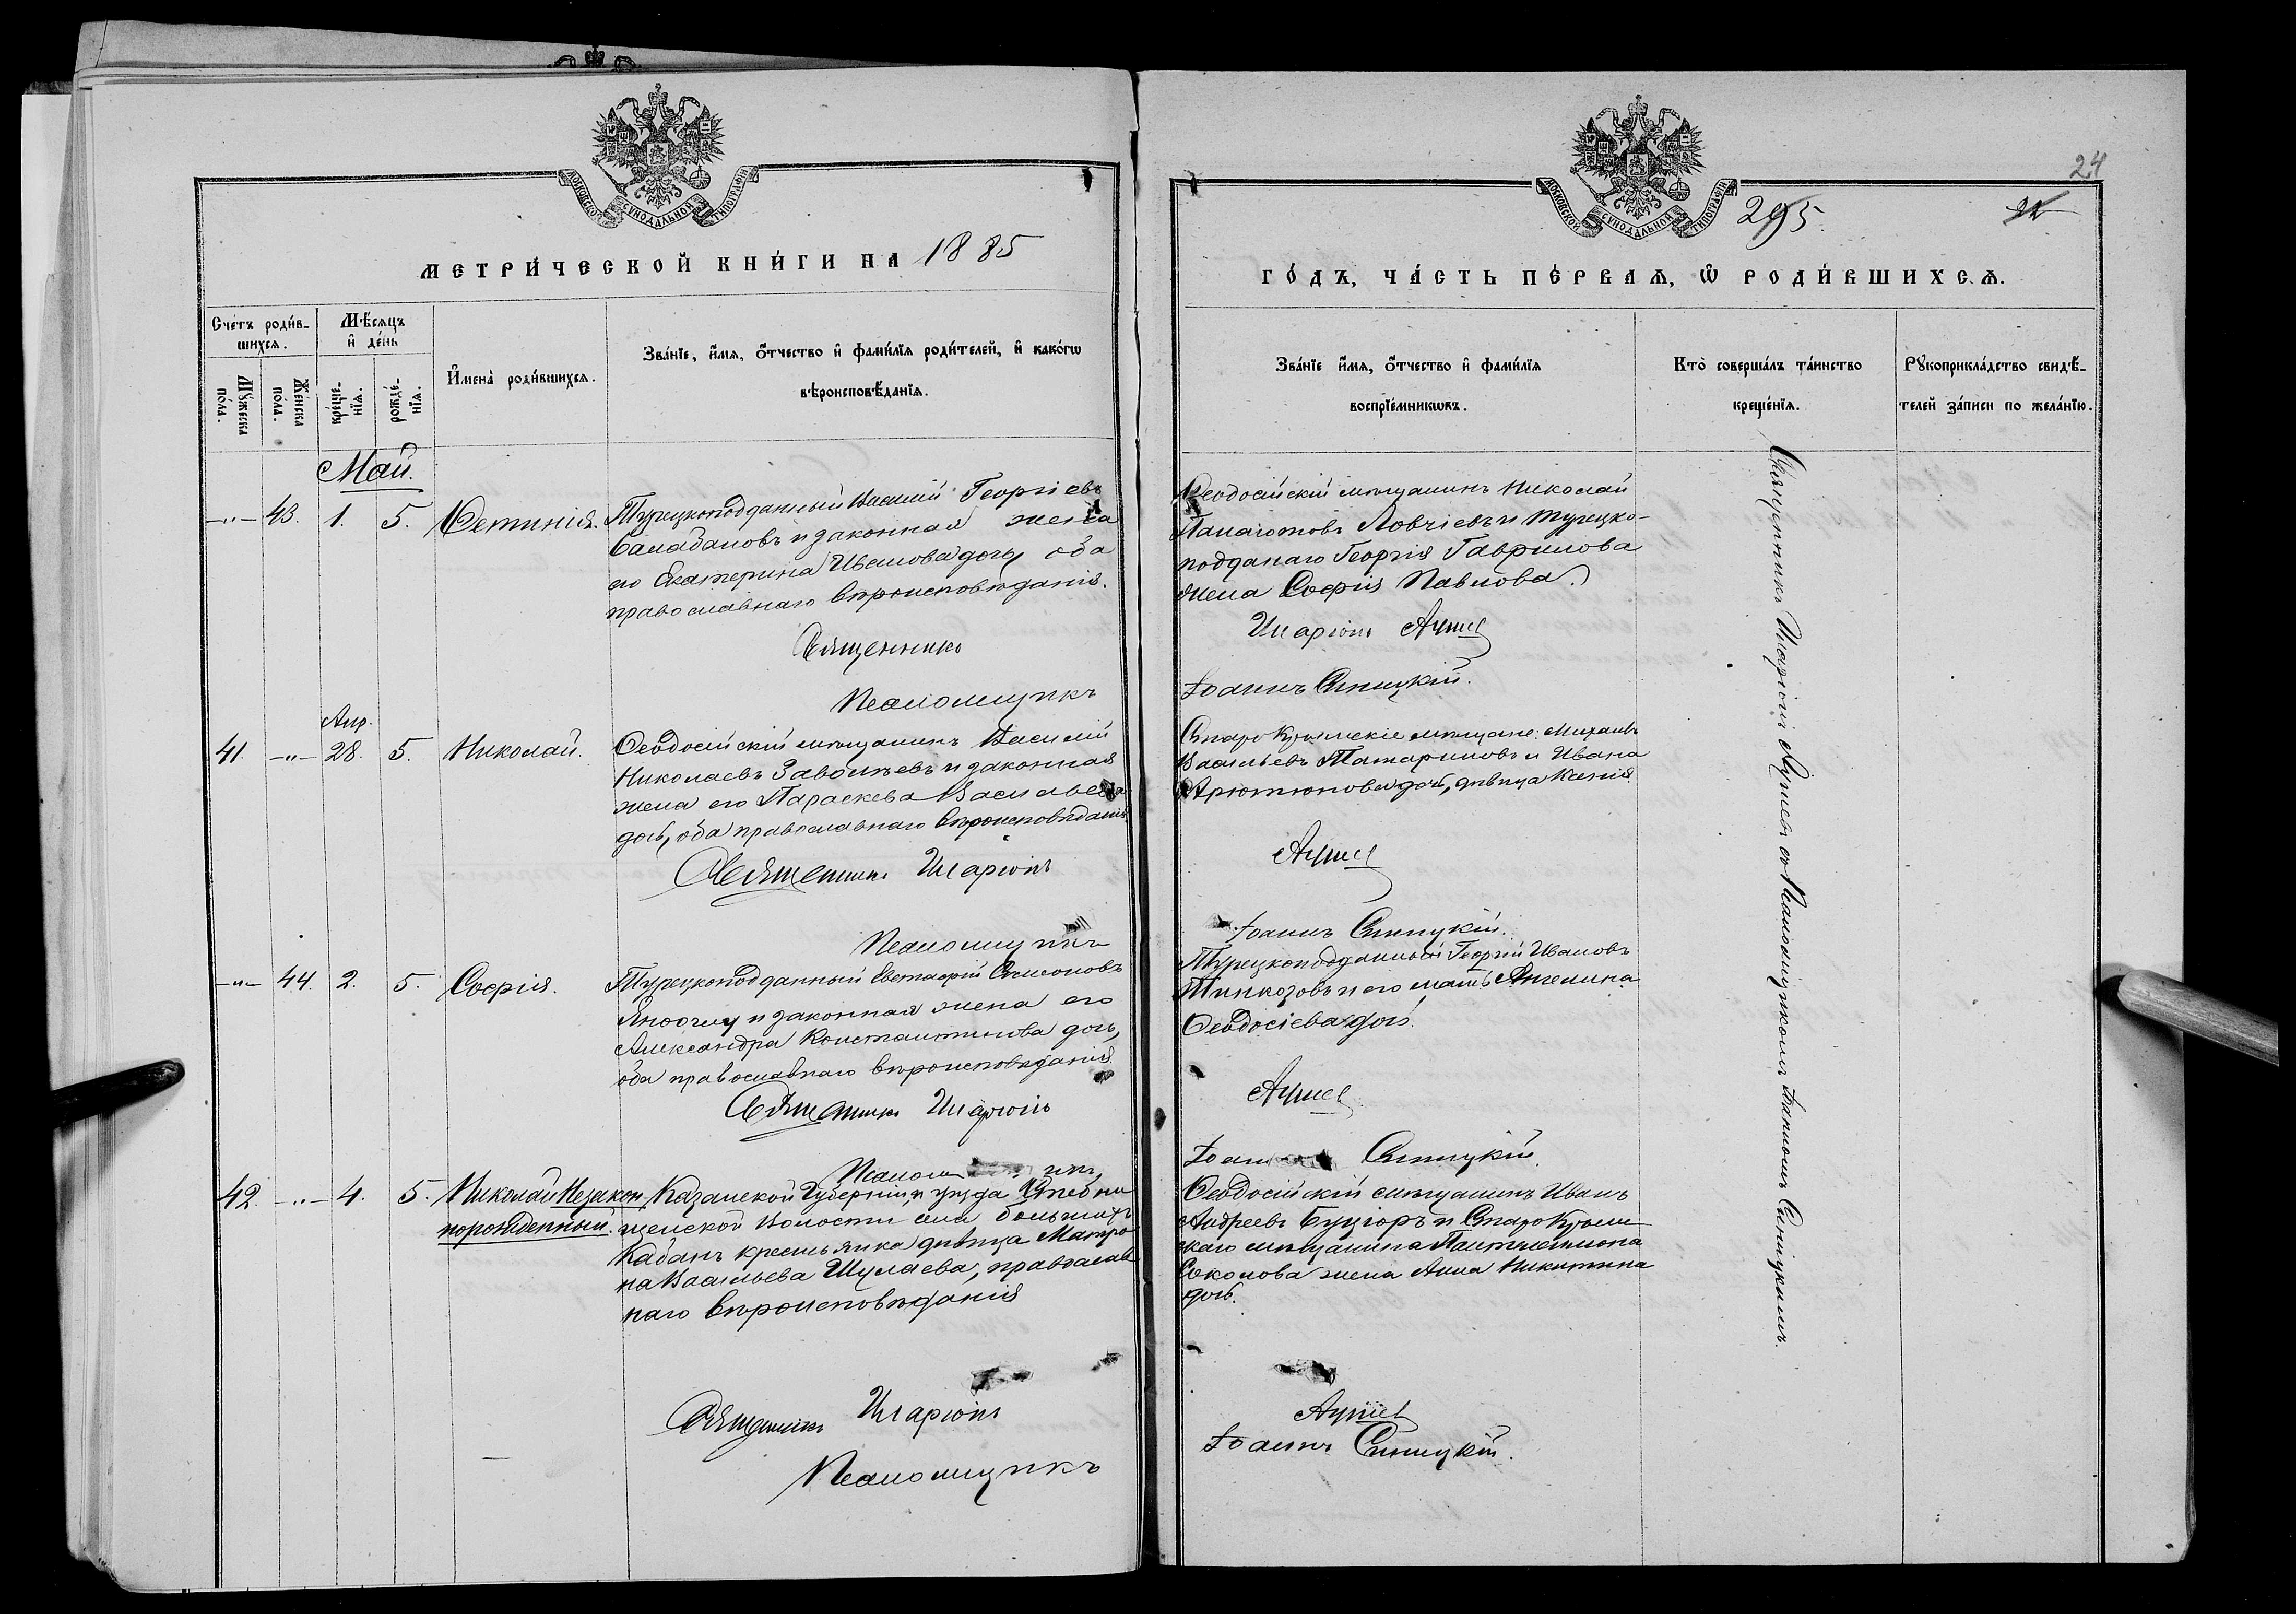 МОСКОВСКОЙ СѴНОДАЛЬНОЙ ТИПОГРАФІИ
МЕТРИ́ЧЕСКОЙ КНИ́ГИ НА 1885
Сче́тъ роди́в-
шихся.
Мѣ́сяцъ
и҆ де́нь
Мꙋ́жеска
по́ла.
Же́нска
по́ла.
креще́-
нїѧ.
рожде́-
нїѧ.
И҆мена̀ роди́вшихся.
Зва́нїе, и҆́мя, ѻ҆́тчество и҆ фами́лїѧ роди́телей, и҆ како́гѡ
вѣроисповѣ́данїѧ.
Май.
-"- 43. 1. 5. Фетинія.
Турецкоподданный Василій Георгіевъ
и законная жена
его Екатерина Иванова дочь оба
православнаго вѣроисповѣданія.
Священникъ
Псаломщикъ
Апр.
41. -"- 28. 5. Николай.
Ѳеодосійскій мѣщанинъ Василій
Николаевъ и законная
жена его Параскева Васильева
дочь, оба православнаго вѣроисповѣданія.
Священникъ Иларіонъ
Псаломщикъ
-"- 44. 2. 5. Софія.
Турецкоподданный Евстафій Симеоновъ
и законная жена его
Александра Константинова дочь,
оба православнаго вѣроисповѣданія.
Священникъ Иларіонъ
Псаломщикъ
42. -"- 4. 5. Николай Незакон
норожденный.
Казанской Губерніи, и уѣзда
щенской Волости села большихъ
Кабанъ крестьянка дѣвица Матро
на Васильева Шулаева, православ
наго вѣроисповѣданія
Священникъ Иларіонъ
Псаломщикъ
24
МОСКОВСКОЙ СѴНОДАЛЬНОЙ ТИПОГРАФІИ
295.
22
ГО́ДЪ, ЧА́СТЬ ПЕ́РВАѦ, Ѽ РОДИ́ВШИХСѦ.
Зва́нїе и҆́мя, ѻ҆́тчество и҆ фами́лїѧ
воспрїе́мникѡвъ.
Кто̀ соверша́лъ та́инство
креще́нїѧ.
Рꙋкоприкла́дство свидѣ́-
телей за́писи по жела́нїю.
Ѳеодосійскій мѣщанинъ Николай
Панаіотовъ Ловчіевъ и турецко-
подданаго Георгія Гаврилова
жена Софія Павлова.
Иларіонъ
Іоаннъ Синицкій.
Старо Крымскіе мѣщане: Михаилъ
Васильевъ Татариновъ и Ивана
Арютюнова дочь, дѣвица Ксенія.
Іоаннъ Синицкій.
Турецкоподданный Георгій Ивановъ
и его мать Ангелина
Ѳеодосіева дочь.
Іоаннъ Синицкій.
Ѳеодосійскій мѣщанинъ Иванъ
Андреевъ и Старо Крым
скаго мѣщанина Пантелеимона
Соколова жена Анна Никитина
дочь.
Іоаннъ Синицкій.
Священникъ Иларіонъ съ Псаломщикомъ Іоанномъ Синицкимъ.